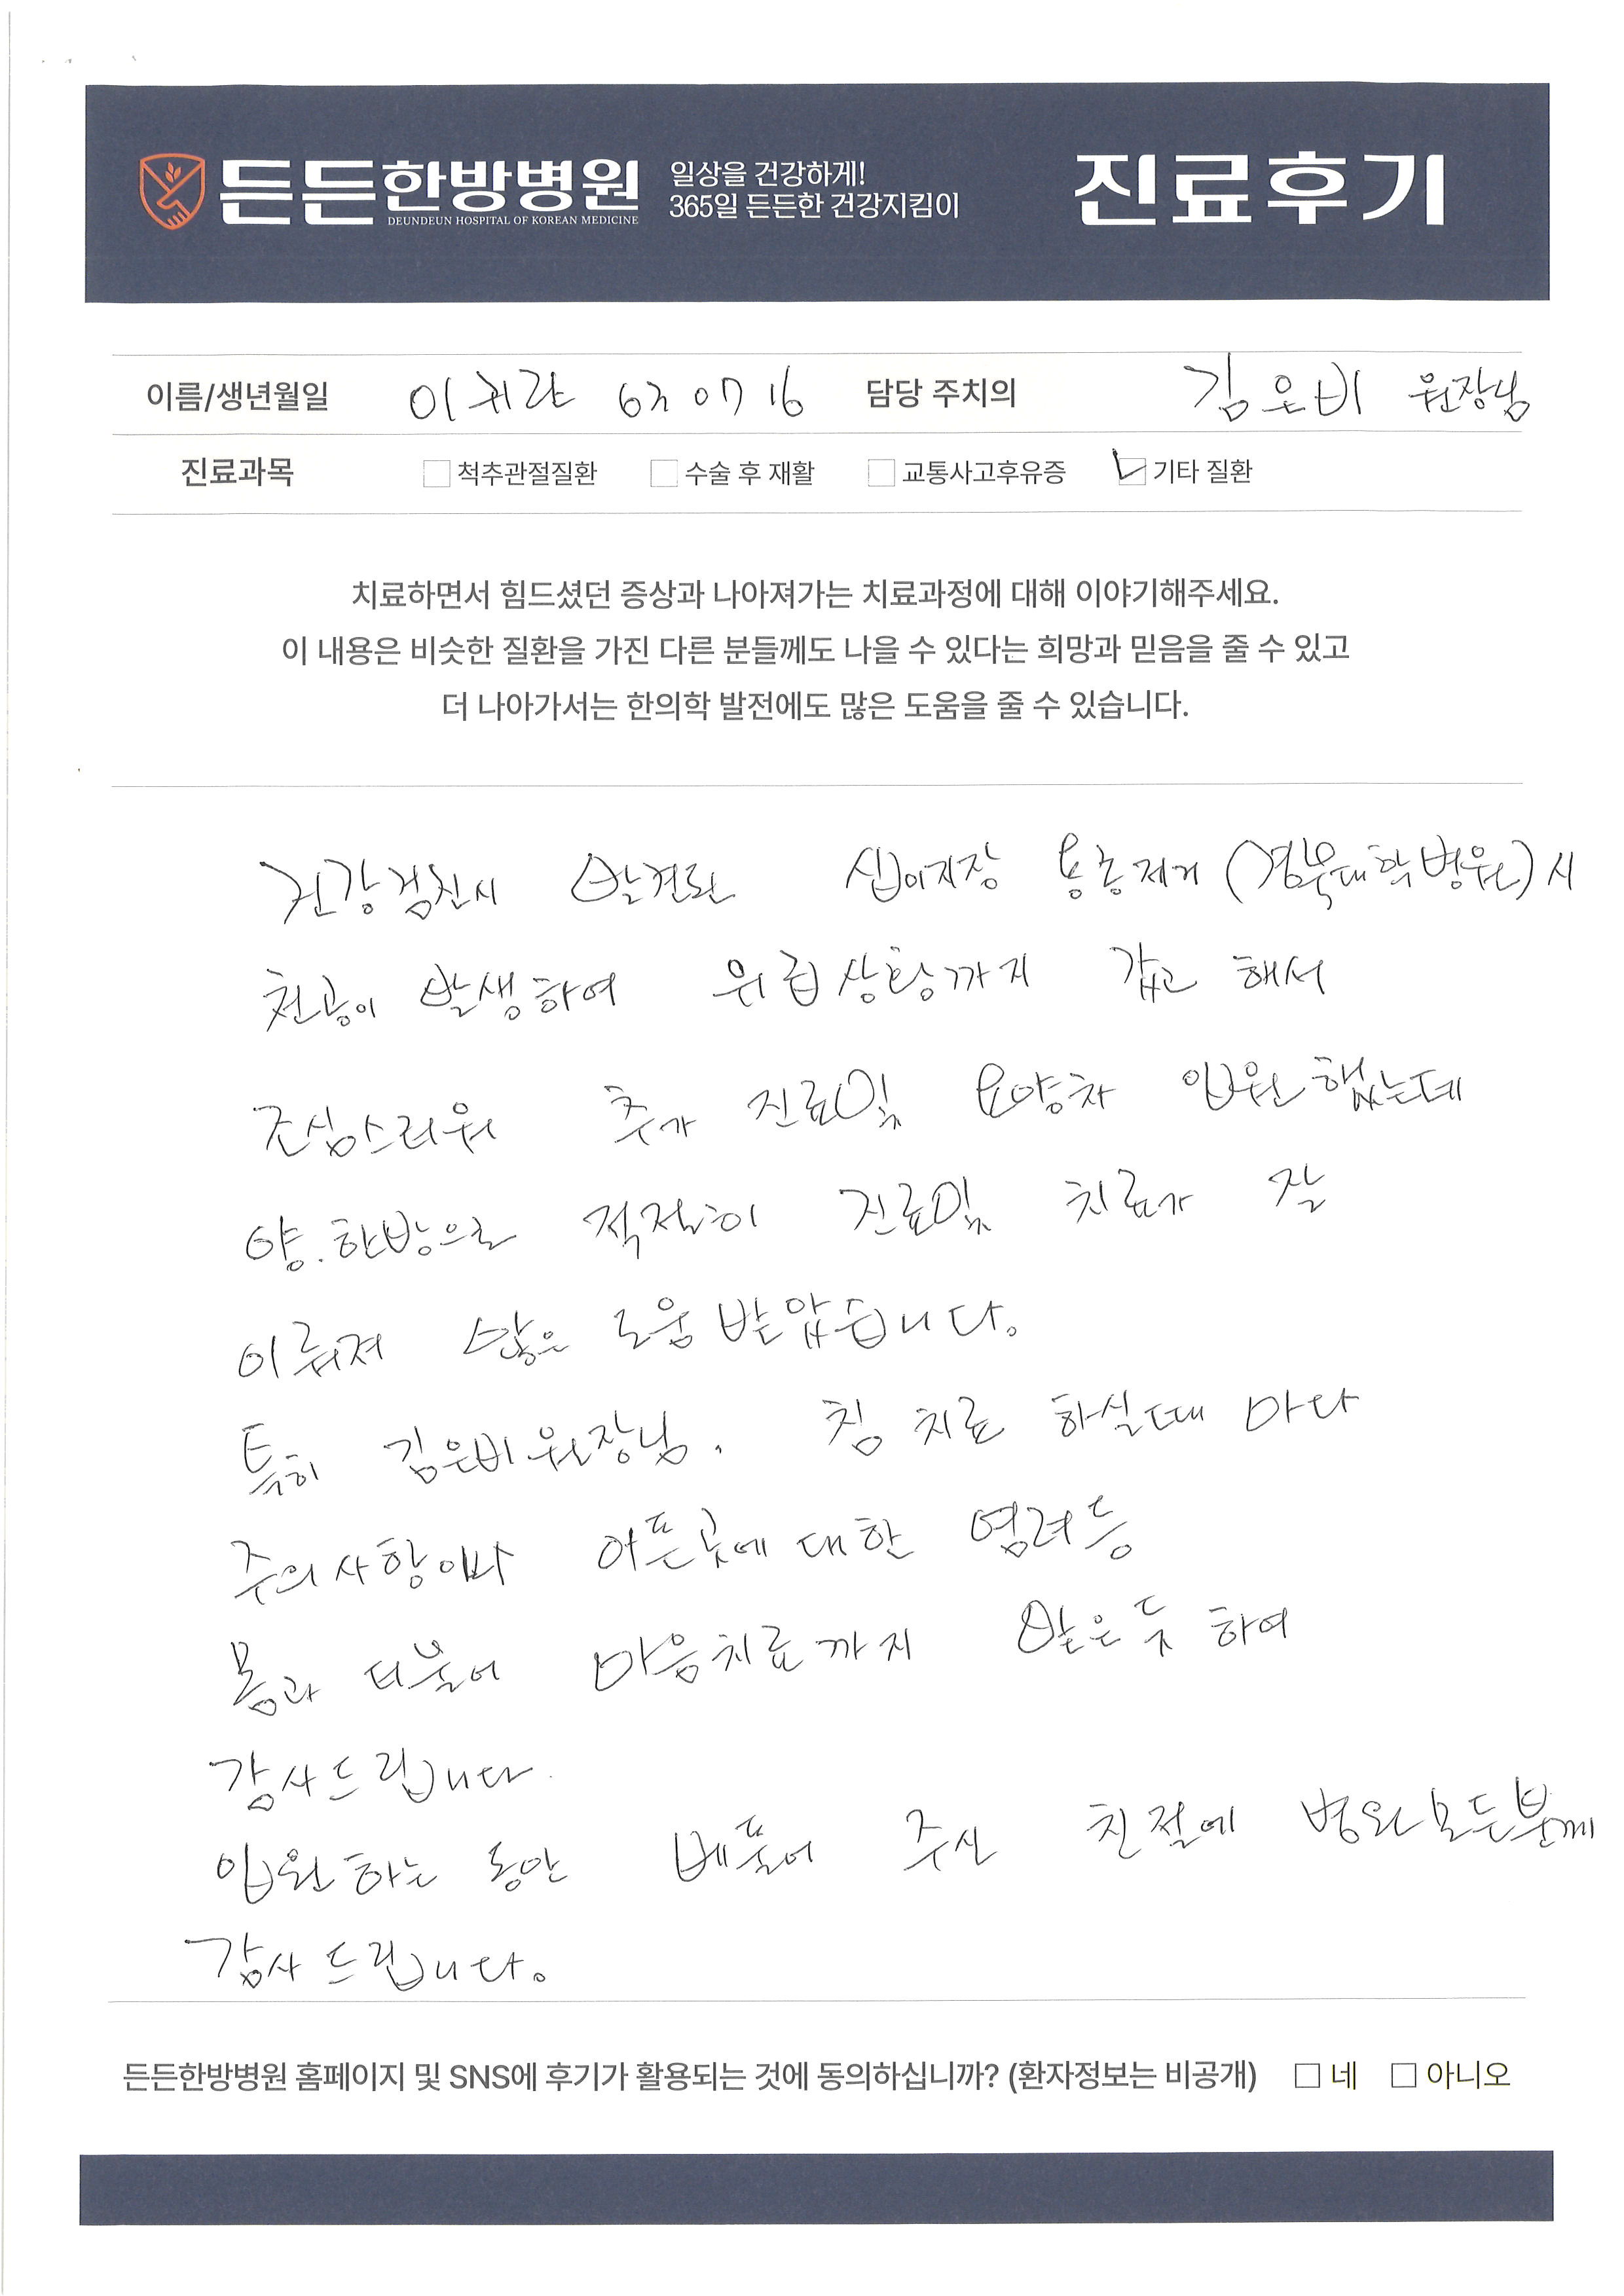 든든한방병원
DEUNDEUN HOSPITAL OF KOREAN MEDICINE
일상을 건강하게!
365일 든든한 건강지킴이
진료후기
이름/생년월일 이귀란 630716 담당 주치의 김은비 원장님
진료과목 척추관절질환 수술 후 재활 교통사고후유증 기타 질환
치료하면서 힘드셨던 증상과 나아져가는 치료과정에 대해 이야기해주세요.
이 내용은 비슷한 질환을 가진 다른 분들께도 나을 수 있다는 희망과 믿음을 줄 수 있고
더 나아가서는 한의학 발전에도 많은 도움을 줄 수 있습니다.
건강검진시 발견된 십이지장 용종제거 (경북대학병원)시
천공이 발생하여 위급상황까지 갔고 해서
조심스러워 추가 진료및 요양차 입원했는데
양.한방으로 적절히 진료및 치료가 잘
이뤄져 많은 도움받았습니다.
특히 김은비원장님. 침 치료 하실때 마다
주의사항이나 아픈곳에 대한 염려등
몸과 더불어 마음치료까지 받은듯 하여
감사드립니다.
입원하는 동안 베풀어 주신 친절에 병원모든분께
감사드립니다.
든든한방병원 홈페이지 및 SNS에 후기가 활용되는 것에 동의하십니까? (환자정보는 비공개) 네 아니오